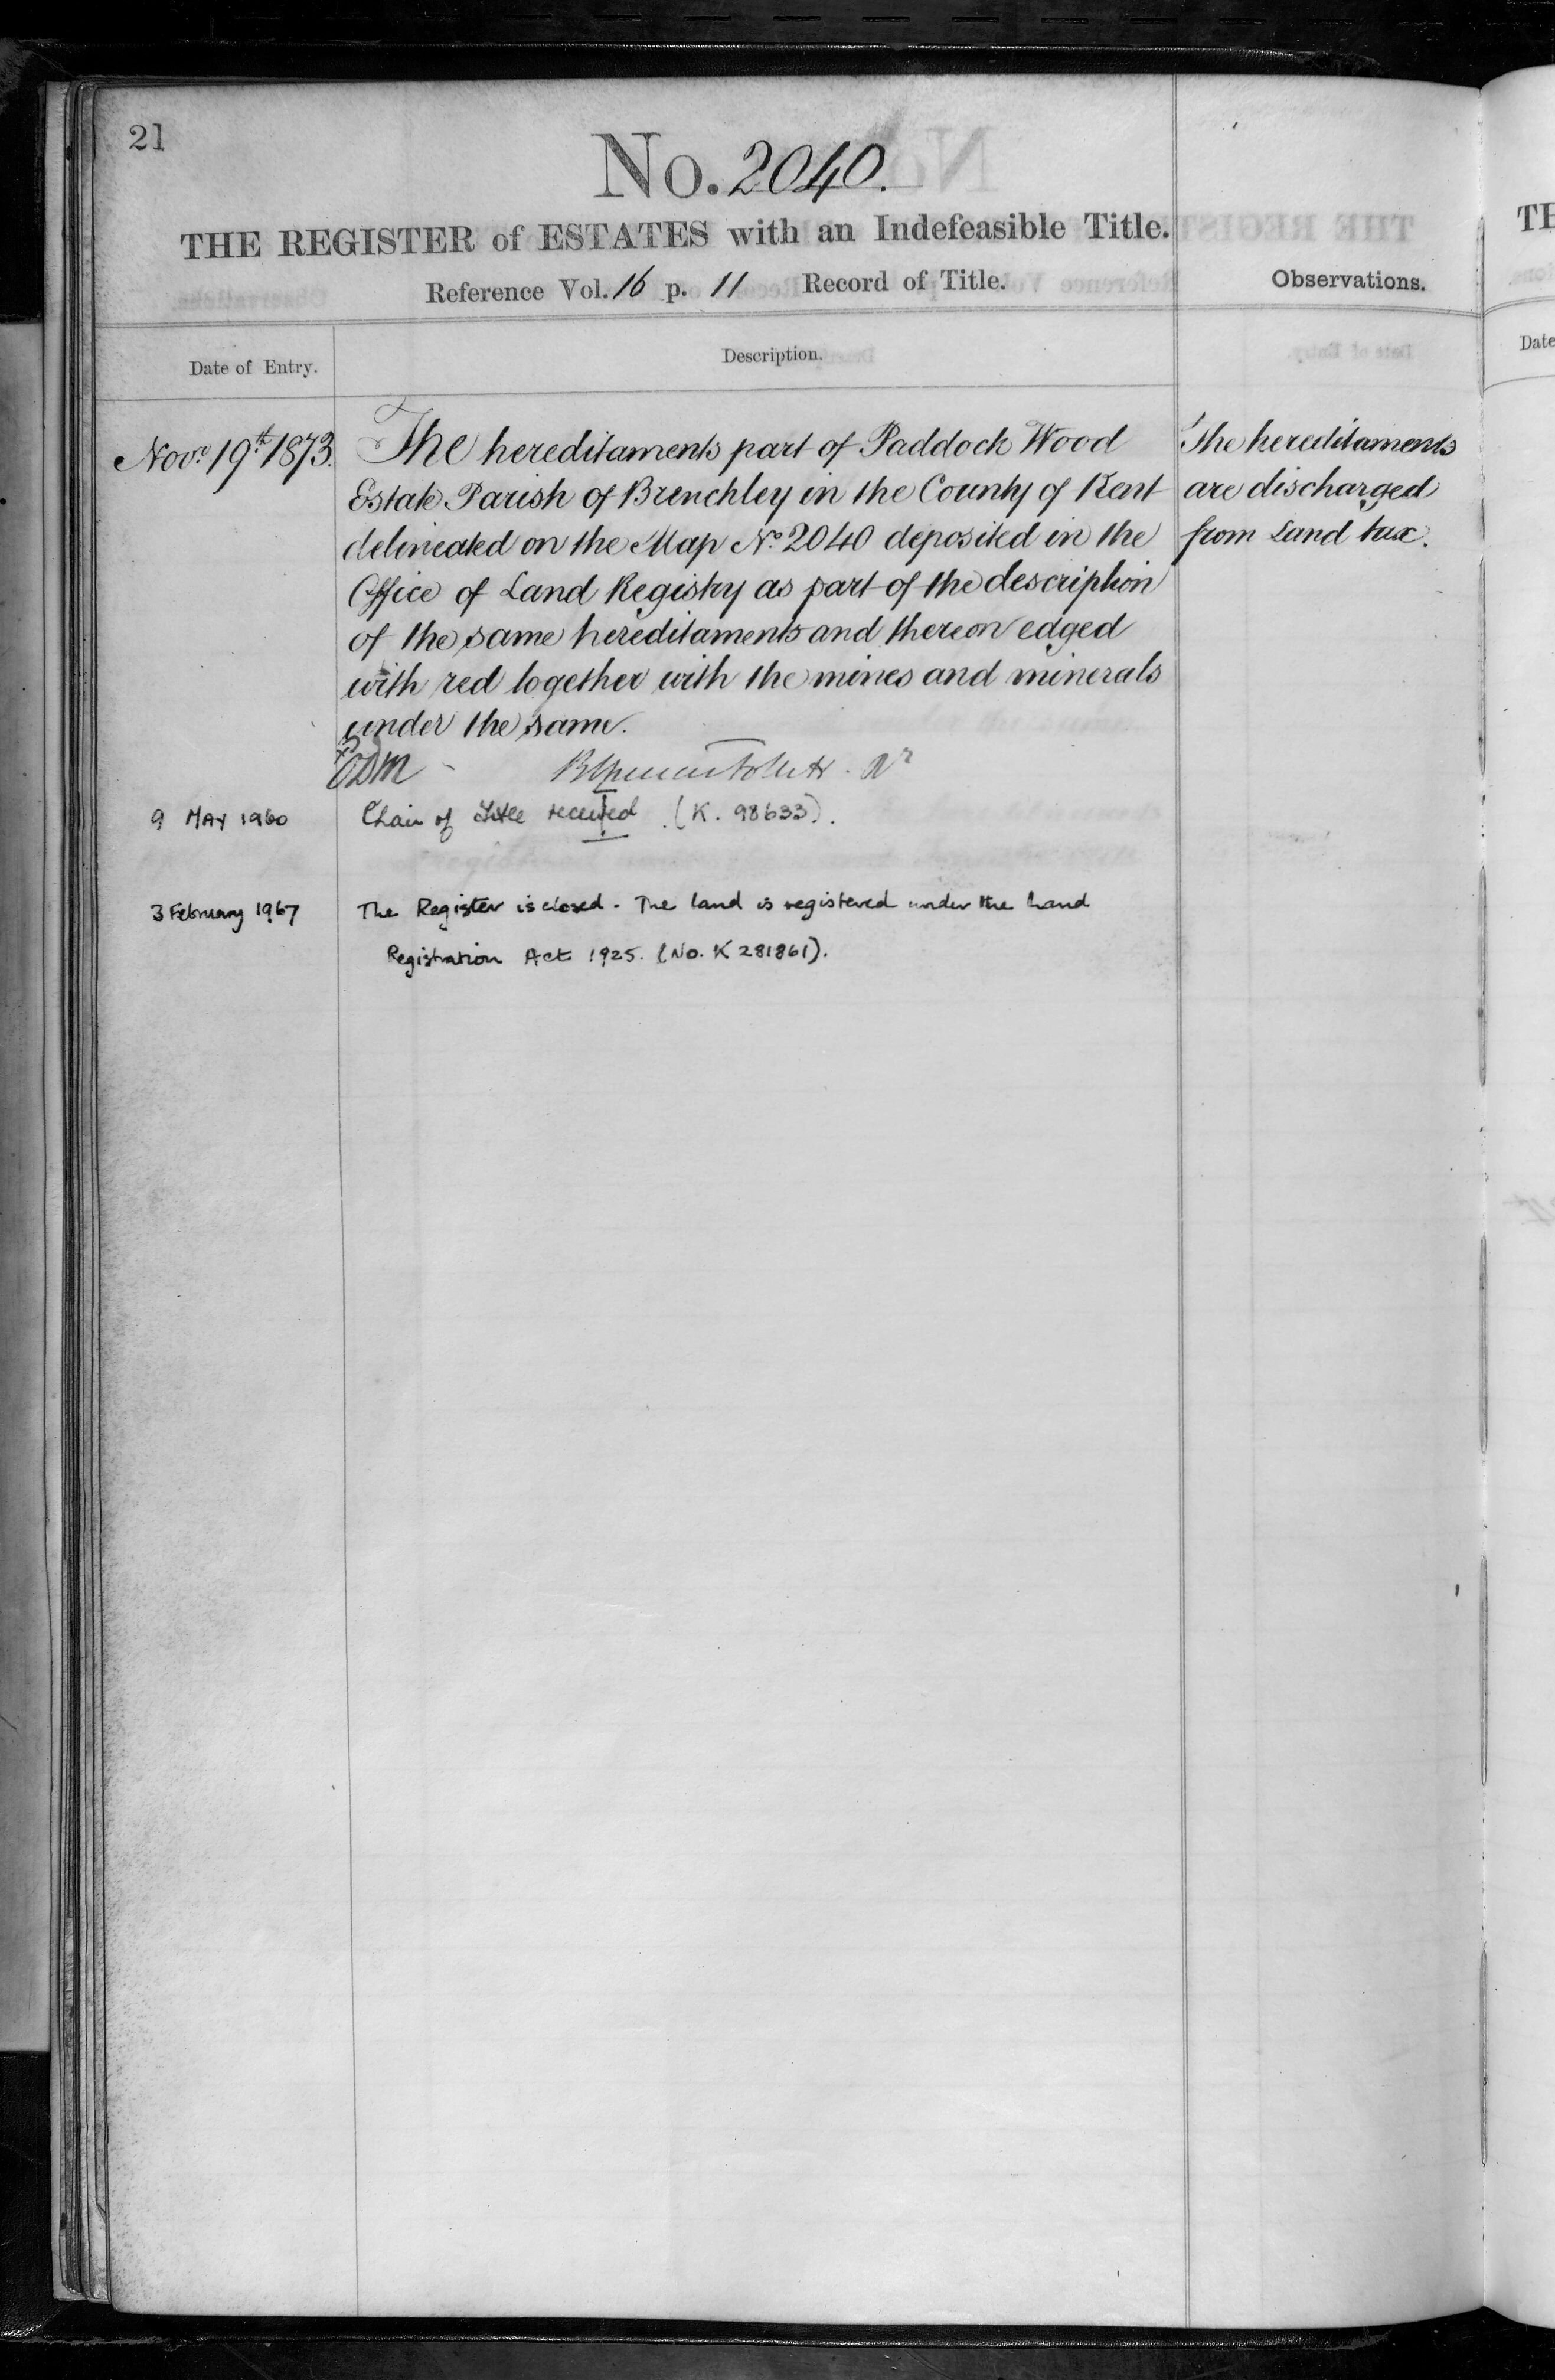 21
No. 2040.
THE REGISTER of ESTATES with an Indefeasible Title.
Reference Vol. 16 p. 11 Record of Title.
Observations.
Date of Entry.
Description.
Novr 19th 1873.
The hereditaments part of Paddock Wood
Estate Parish of Brenchley in the County of Kent
delineated on the Map No 2040 deposited in the
Office of Land Registry as part of the description
of the same hereditaments and thereon edged
with red together with the mines and minerals
under the same.
The hereditaments
are discharged
from Land tax.
9 MAY 1960
Chain of Title received (K. 98633).
3 February 1967
The Register is closed. The land is registered under the Land
Registration Act 1925. (No. K 281861).
Date